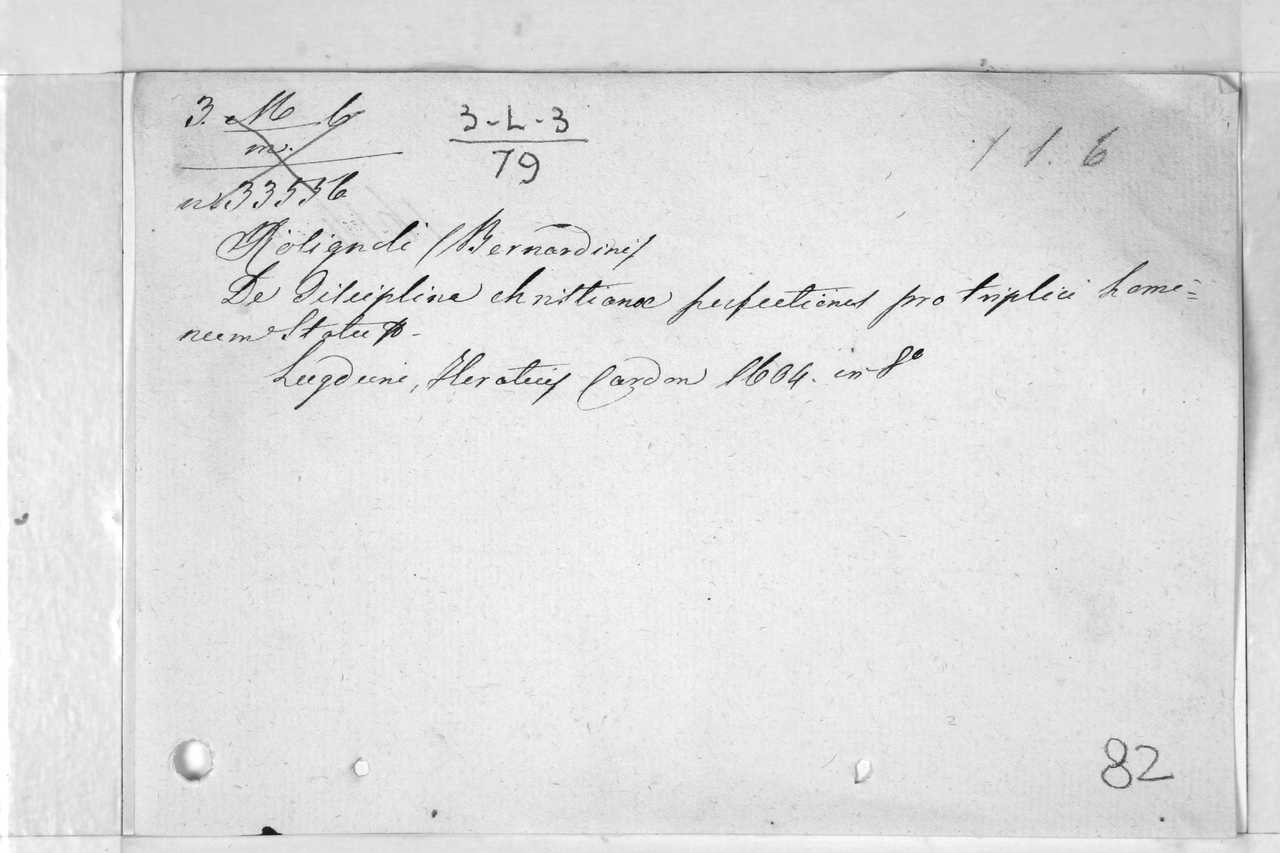 3. M 6
m.
3-L-3
79
1 1. 6
nº 33556
Rolignoli (Bernardini)
De Disciplina christianæ perfectiones pro triplici homi=
num Statu
Lugduni, Horatius Cardon 1604. in 8º
82